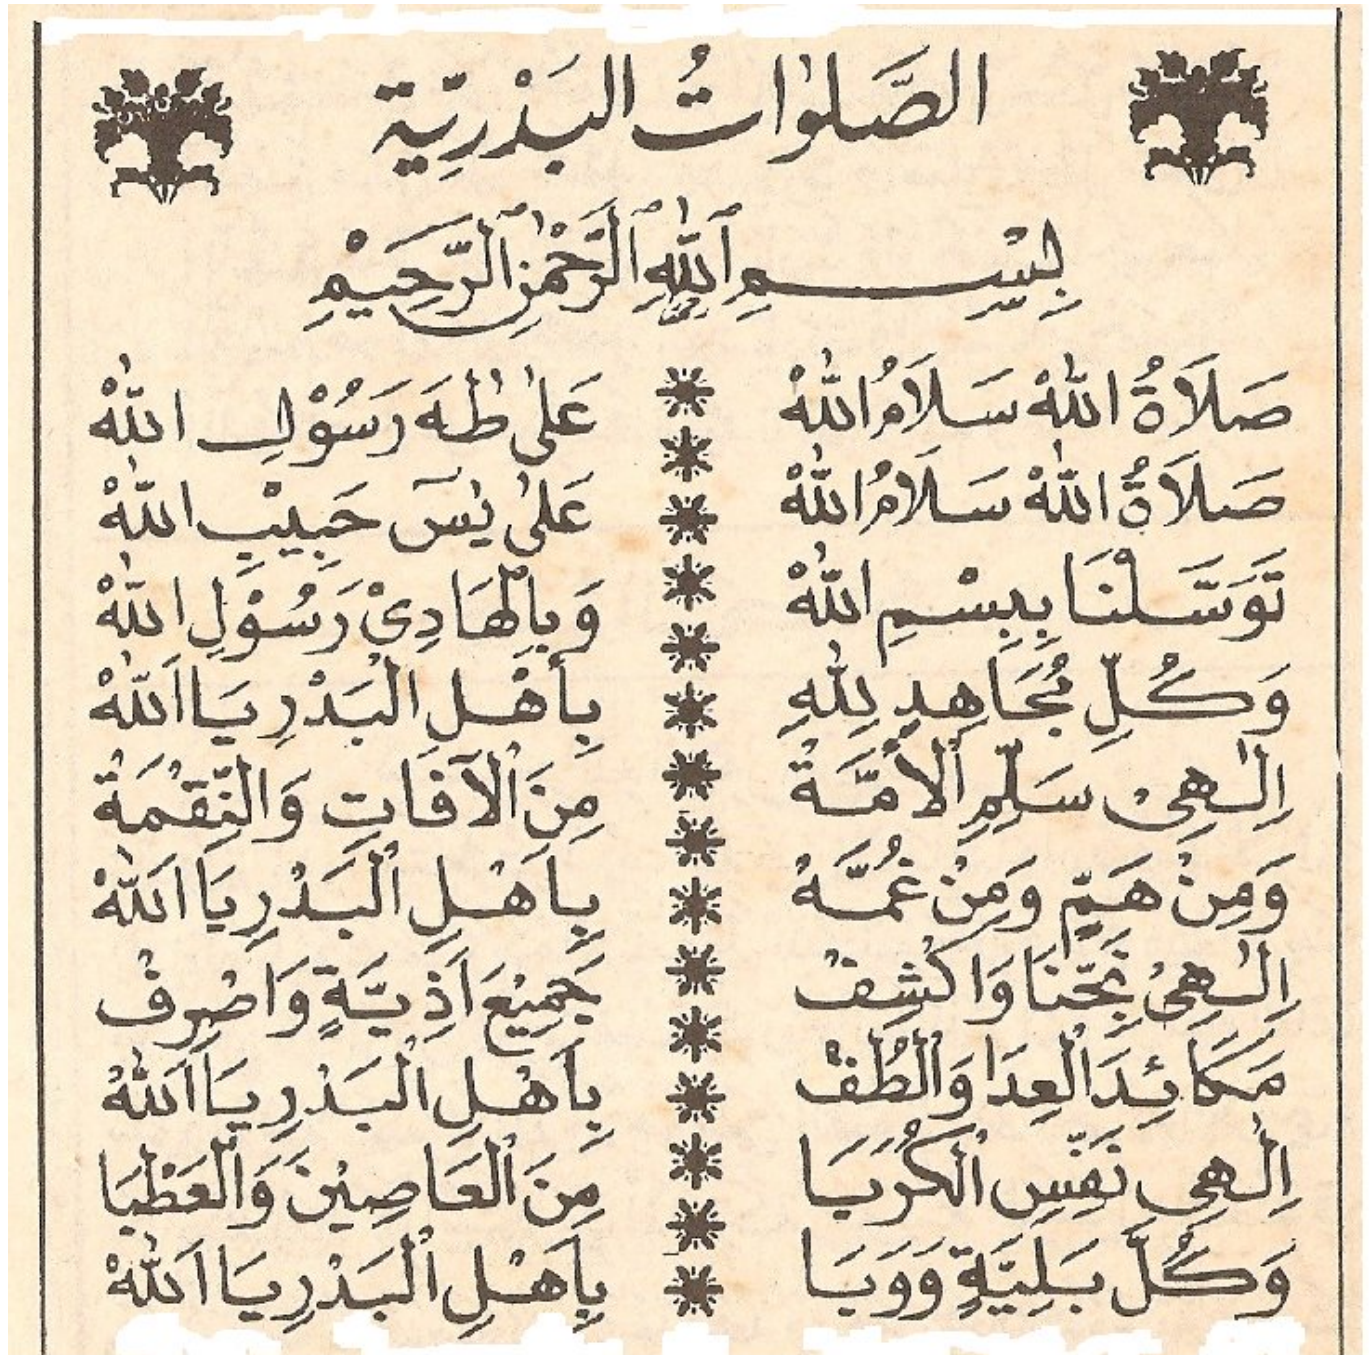 الصَّلَوٰاتُ البَدْرِيَّة
بِسْمِ ٱللّٰهِ ٱلرَّحْمٰنِ ٱلرَّحِيْمِ
صَلَاةُ اللّٰهْ سَلَامُ اللّٰهْ عَلٰى طٰهَ رَسُوْلِ اللّٰهْ
صَلَاةُ اللّٰهْ سَلَامُ اللّٰهْ عَلٰى يٰسٓ حَبِيْبِ اللّٰهْ
تَوَسَّلْنَا بِبِسْمِ اللّٰهْ وَبِالْهَادِيْ رَسُوْلِ اللّٰهْ
وَكُلِّ مُجَاهِدٍ لِلّٰهِ بِأَهْلِ الْبَدْرِ يَا اَللّٰهْ
اِلٰهِيْ سَلِّمِ الْأُمَّةْ مِنَ الْآفَاتِ وَالنِّقْمَةْ
وَمِنْ هَمٍّ وَمِنْ غُمَّةْ بِاَهْلِ الْبَدْرِ يَا اَللّٰهْ
اِلٰهِيْ نَجِّنَا وَاكْشِفْ جَمِيْعَ اَذِيَّةٍ وَاصْرِفْ
مَكَائِدَ الْعِدَا وَالْطُفْ بِاَهْلِ الْبَدْرِ يَا اَللّٰهْ
اِلٰهِي نَفِّسِ الْكُرَبَا مِنَ الْعَاصِيْنَ وَالْعَطْبَا
وَكُلَّ بَلِيَّةٍ وَوَبَا بِاَهْلِ الْبَدْرِ يَا اَللّٰهْ